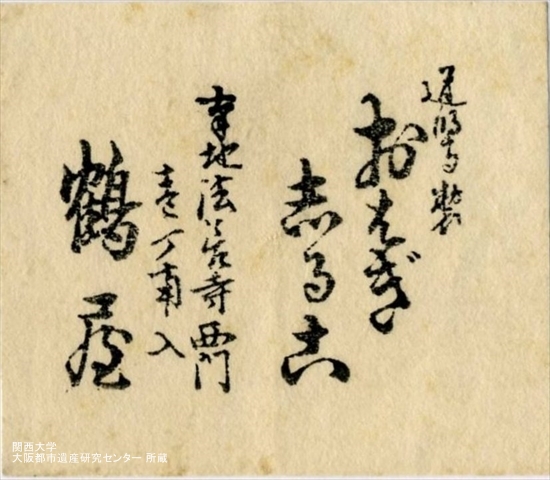 道明寺製
おはぎ
志るこ
南地法善寺西門
壱丁南入
鶴屋
関西大学
大阪都市遺産研究センター 所蔵